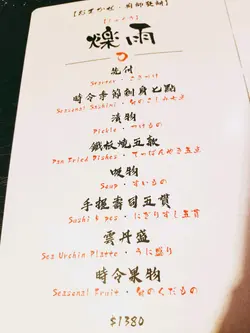 【おまかせ・廚師發辦】
爍雨
先付
Starter・さきつけ
時令手節刺身七點
Seasonal Sashimi・旬のさしみ七点
漬物
Pickle・つけもの
鐵板燒五款
Pan Fried Dishes・てっぱんやき五点
吸物
Soup・すいもの
手握壽司五貫
Sushi 5 pcs・にぎりすし五貫
雲丹盛
Sea Urchin Platte・うに盛り
時令果物
Seasonal Fruit・旬のくだもの
$1380